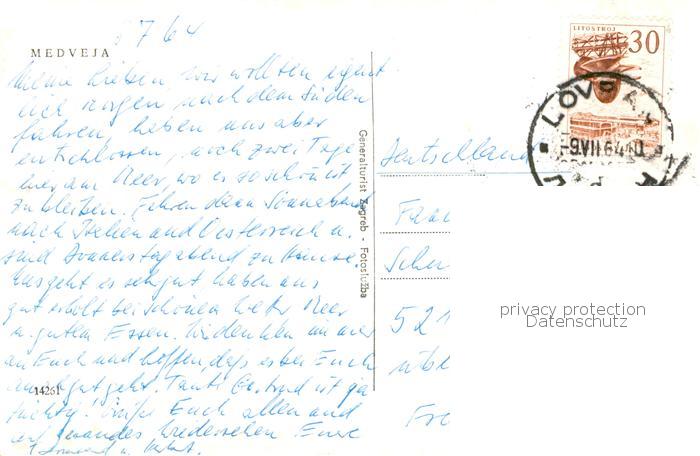 8 7 64
MEDVEJA
Meine Lieben wir wollten eigent
lich morgen nach dem Süden
fahren, haben uns aber
entschlossen, noch zwei Tage
hier am Meer, wo es so schön ist
zu bleiben. Fahren dann Sonnabend
nach Italien und Oesterreich u.
sind Donnerstagabend zu Hause.
Uns geht es sehr gut haben uns
gut erholt bei schönem Wetter Meer
u. gutem Essen. Wir denken immer
an Euch und hoffen, dass es bei Euch
auch gut geht. Tante Gertrud ist ja
tüchtig! Grüße Euch allen und
auf gesundes Wiedersehen Eure
14261
Generalturist Zagreb - Fotoslužba
LITOSTROJ
30
LOV
9.VII.64
Deutschland
Frau
Schu
521
übe
Fr
privacy protection
Datenschutz